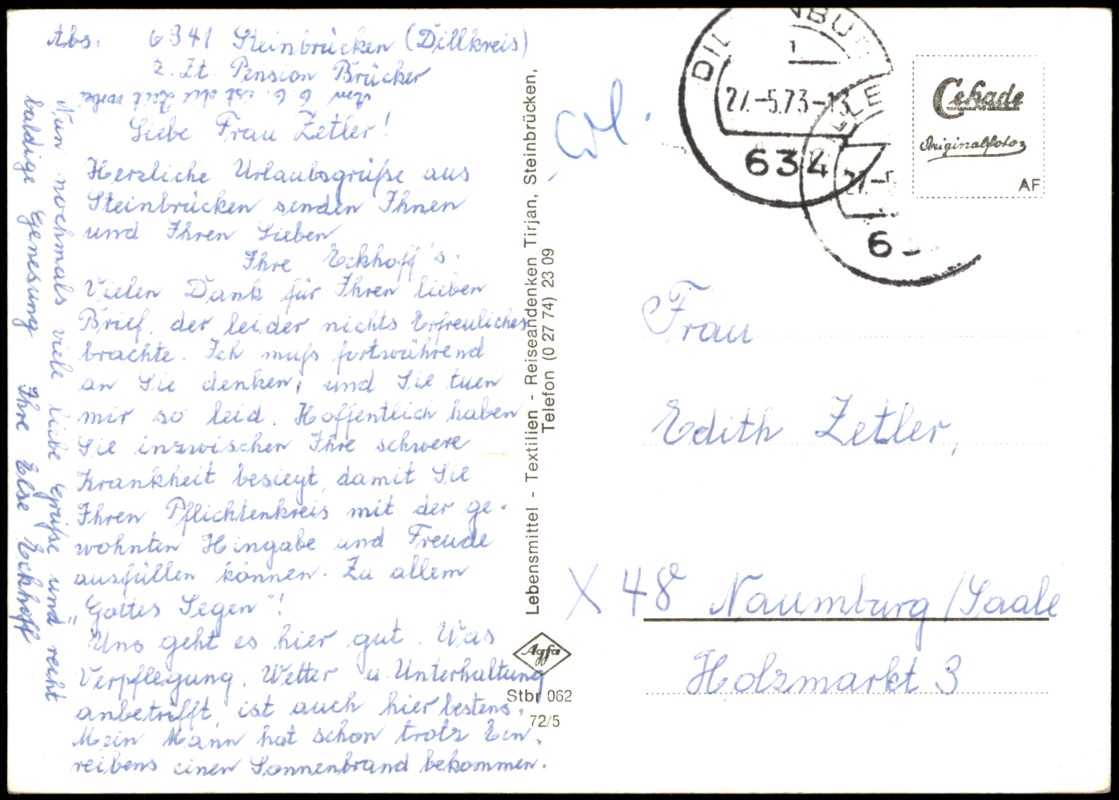 Abs. 6341 Steinbrücken (Dillkreis)
z. Zt. Pension Brücker
Am 6. 6. ist die Zeit vorbei
Liebe Frau Zetler!
Herzliche Urlaubsgrüße aus
Steinbrücken senden Ihnen
und Ihren Lieben
Ihre Eckhoff's.
Vielen Dank für Ihren lieben
Brief, der leider nichts Erfreuliches
brachte. Ich muß fortwährend
an Sie denken, und Sie tuen
mir so leid. Hoffentlich haben
Sie inzwischen Ihre schwere
Krankheit besiegt, damit Sie
Ihren Pflichtenkreis mit der ge-
wohnten Hingabe und Freude
ausfüllen können. Zu allem
„Gottes Segen"!
Uns geht es hier gut. Was
Verpflegung, Wetter u. Unterhaltung
anbetrifft, ist auch hier bestens.
Mein Mann hat schon trotz Ein-
reibens einen Sonnenbrand bekommen.
Nun nochmals viele liebe Grüße und recht
baldige Genesung Ihre Else Eckhoff
Lebensmittel - Textilien - Reiseandenken Tirjan, Steinbrücken,
Telefon (0 27 74) 23 09
Agfa
Stbr 062
72/5
27.-5.73-13
634
27.-5
6
Cekade
Originalfoto
AF
Frau
Edith Zetler,
X 48 Naumburg/Saale
Holzmarkt 3